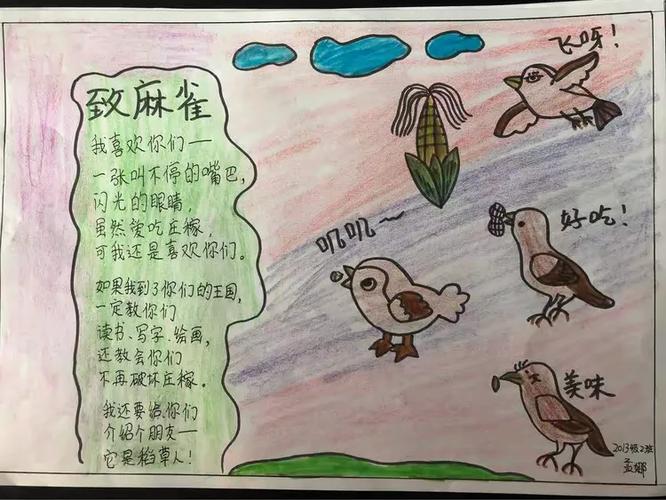 致麻雀
我喜欢你们——
一张叫不停的嘴巴，
闪光的眼睛，
虽然爱吃庄稼，
可我还是喜欢你们。
如果我到了你们的王国，
一定教你们
读书、写字、绘画，
还教会你们
不再破坏庄稼。
我还要给你们
介绍个朋友——
它是稻草人！
飞呀！
叽叽～
好吃！
美味
2013级2班